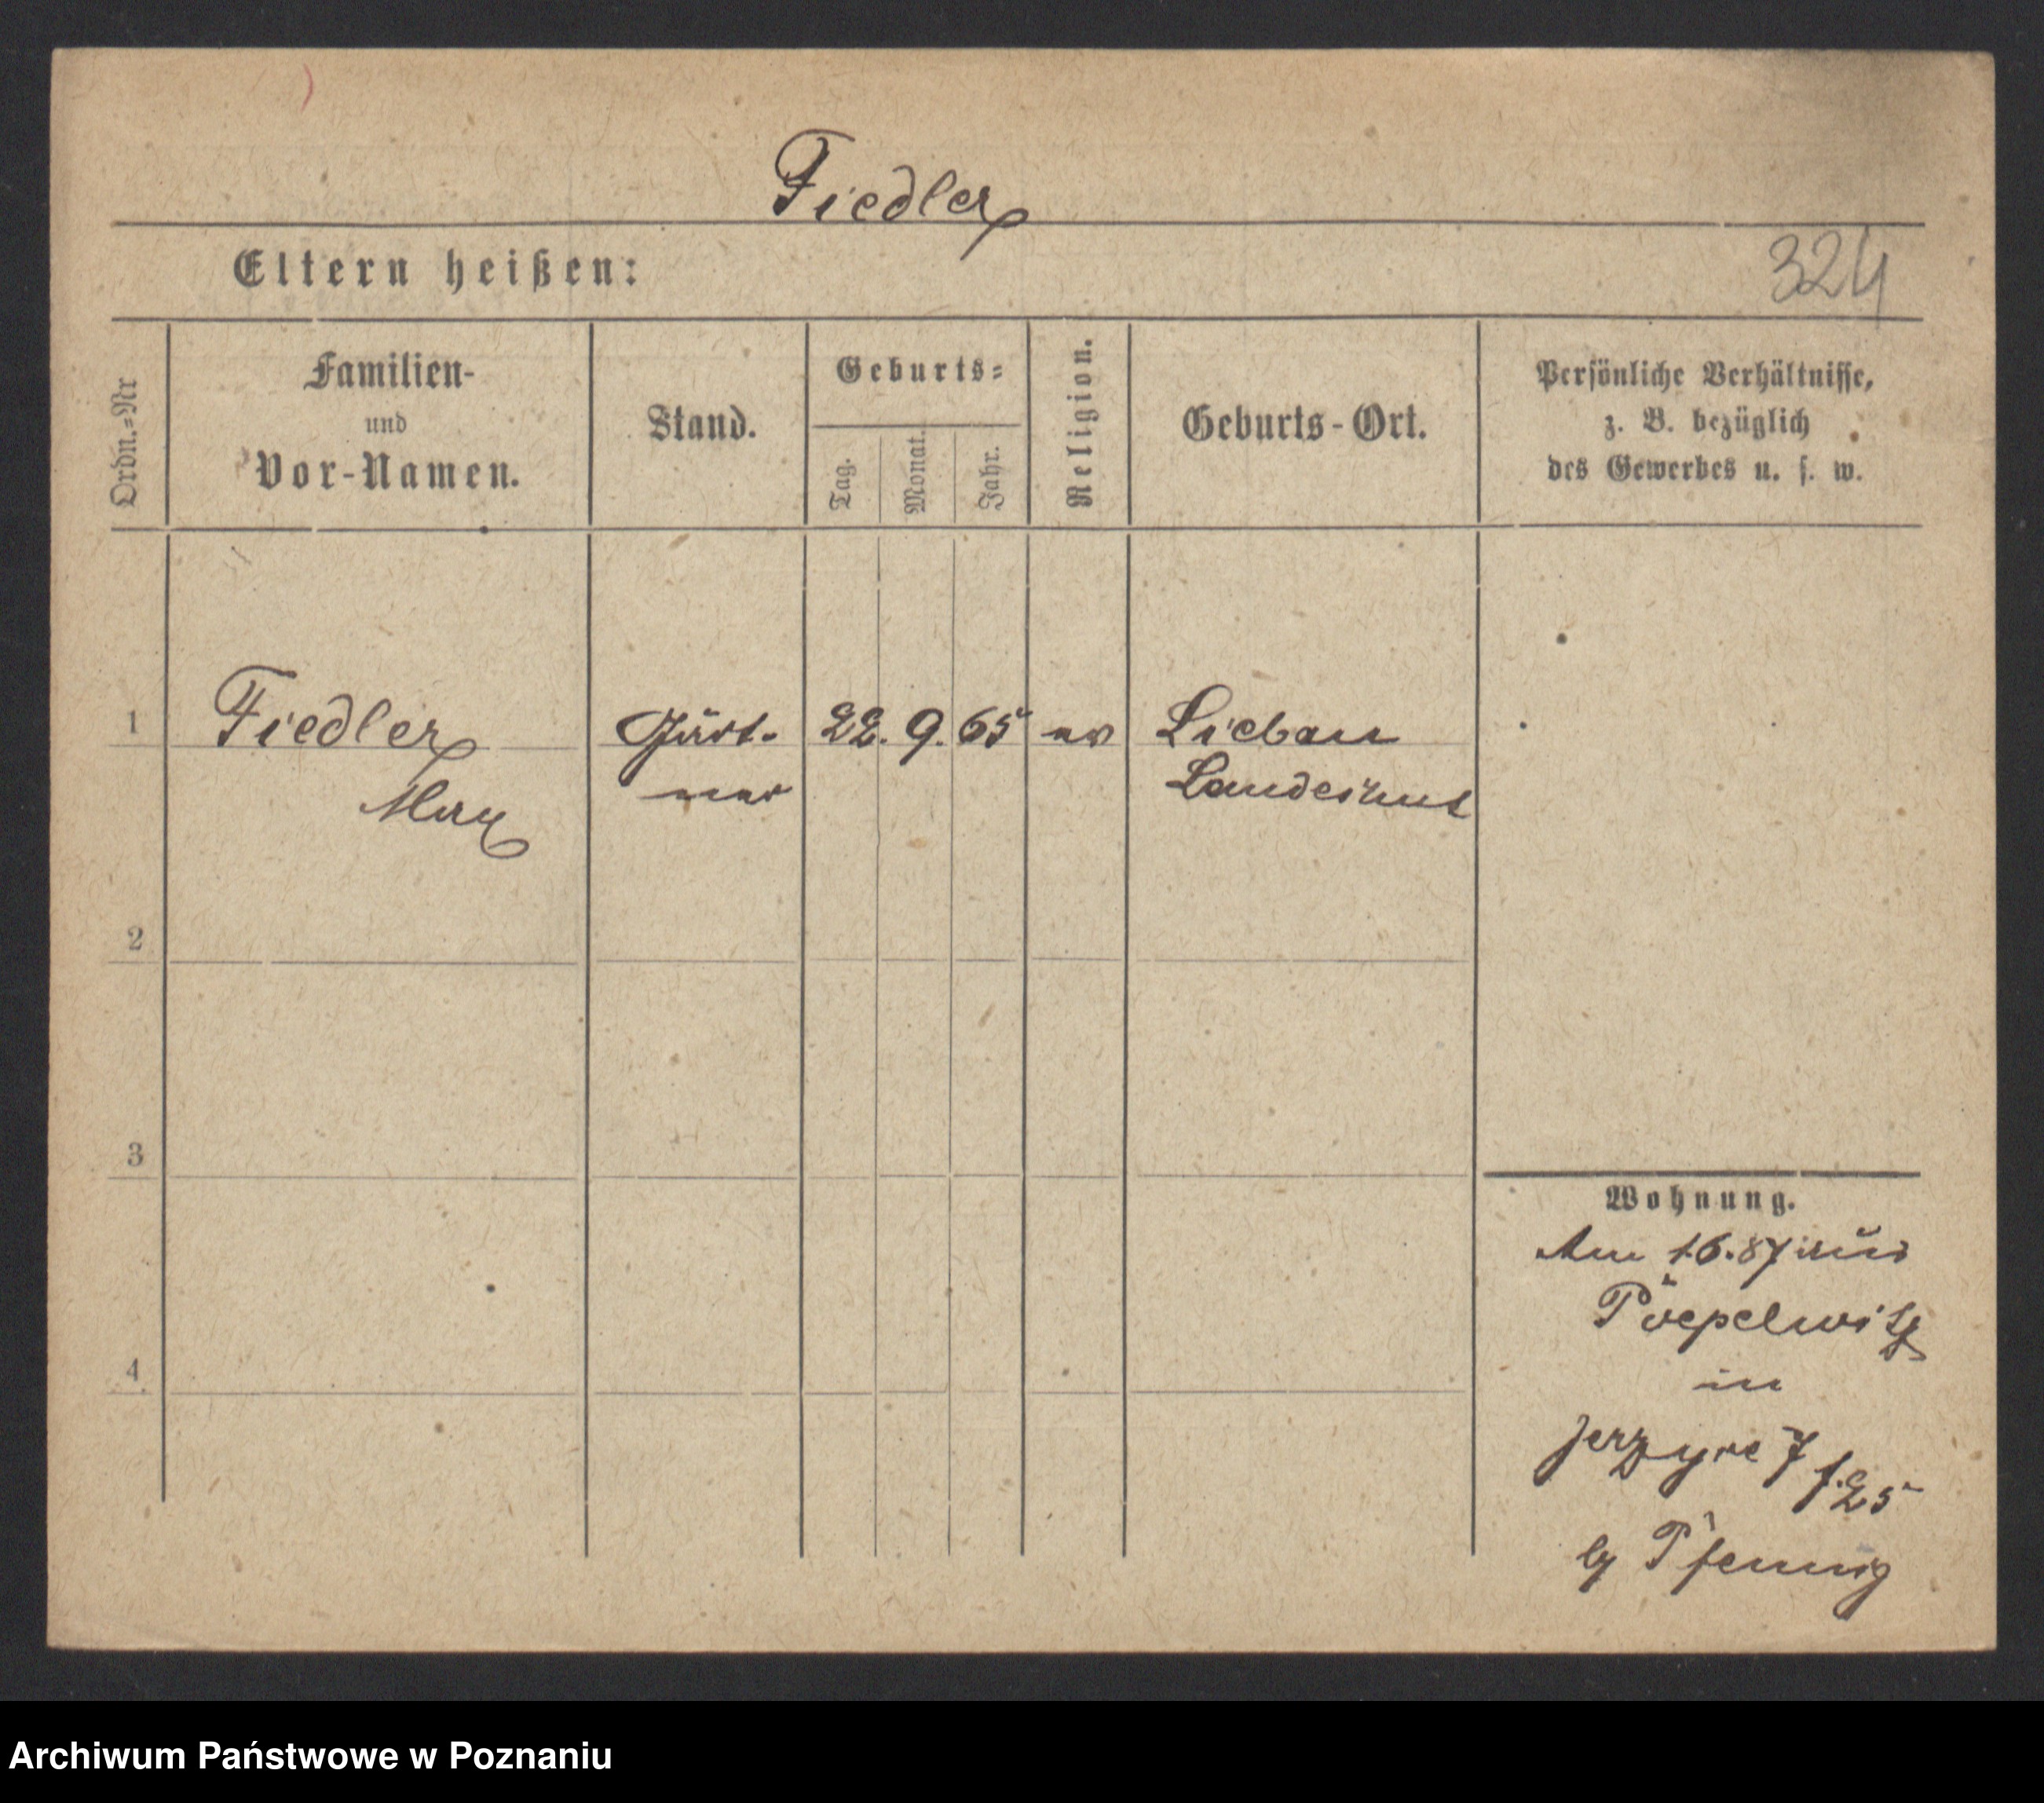 Fiedler
Eltern heißen:
324
Ordn.=Nr
Familien-
und
Vor-Namen.
Stand.
Geburts=
Tag.
Monat.
Jahr.
Religion.
Geburts-Ort.
Persönliche Verhältnisse,
z. B. bezüglich
des Gewerbes u. s. w.
1 Fiedler Gärt- 22. 9. 65 ev Liebau
Max ner Landeshut
2
3
4
Wohnung.
Am 1.6.87 aus
Pöepelwitz
in
Jerzyce 7
f. 25
by Pfennig
Archiwum Państwowe w Poznaniu